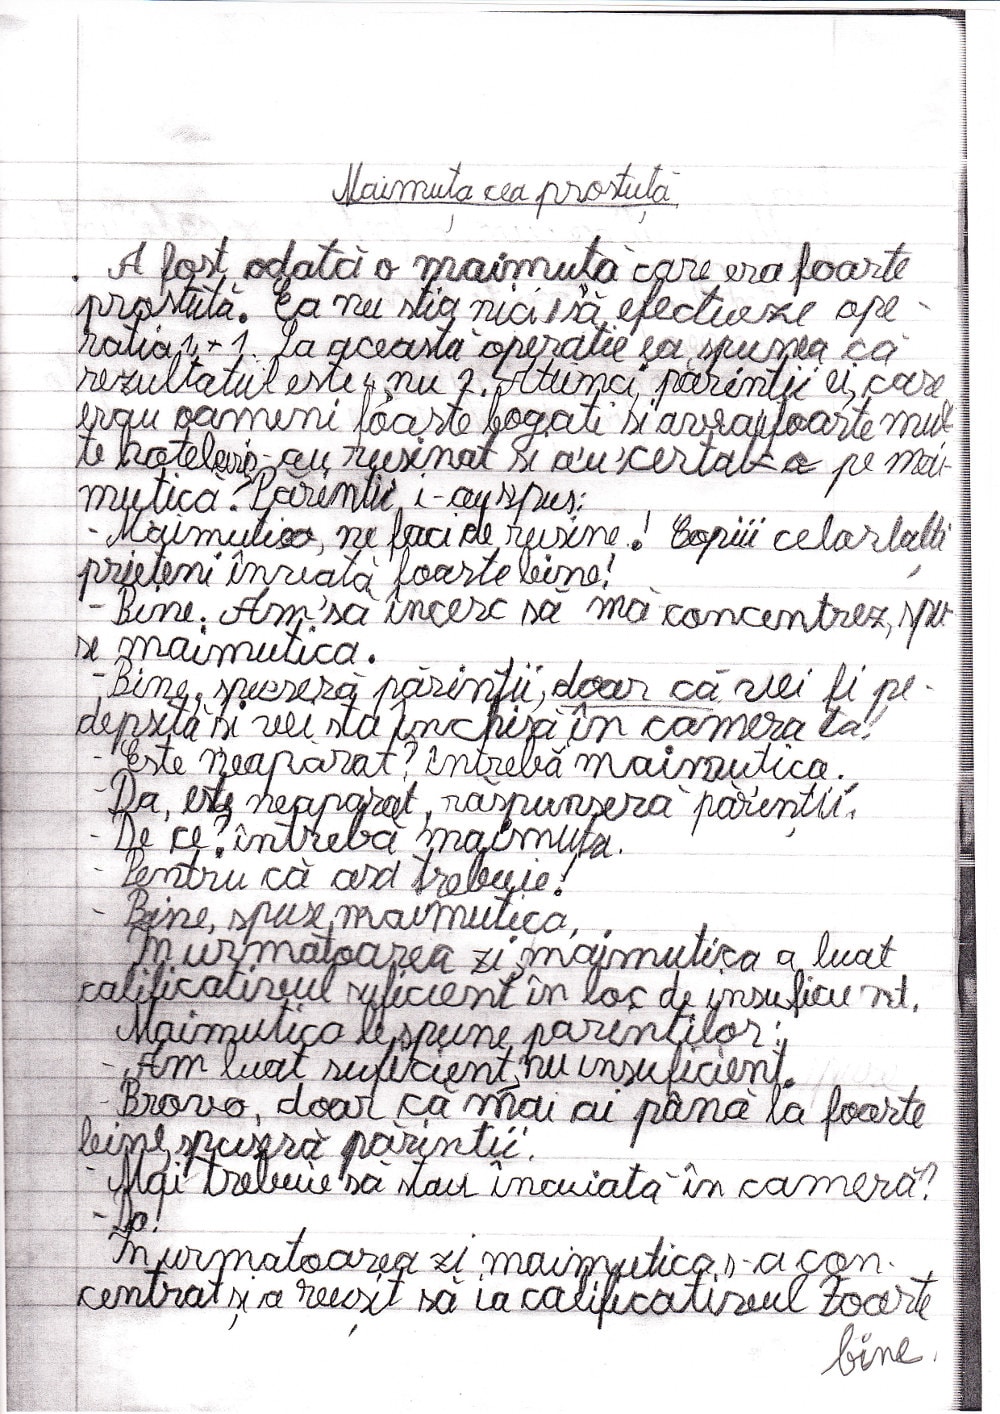 Maimuța cea prostuță
A fost odată o maimuță care era foarte
prostuță. Ea nu știa nici să efectueze ope-
rația 1 + 1. La această operație ea spunea că
rezultatul este 4 nu 2. Atunci părinții ei, care
erau oameni foarte bogați și aveau foarte mul-
te hoteluri s-au rușinat și au certat-o pe mai-
muțică. Părinții i-au spus:
- Maimuțico, ne faci de rușine! Copiii celorlalți
prieteni învață foarte bine!
- Bine. Am să încerc să mă concentrez, spu-
se maimuțica.
- Bine, spuseră părinții, doar că vei fi pe-
depsită și vei sta închisă în camera ta!
- Este neapărat? întrebă maimuțica.
- Da, este neaparat, răspunseră părinții.
- De ce? întrebă maimuța.
- Pentru că așa trebuie!
- Bine, spuse maimuțica.
În următoarea zi, maimuțica a luat
calificativul suficient în loc de insuficient.
Maimuțica le spune parinților:
- Am luat suficient, nu insuficient.
- Bravo, doar că mai ai până la foarte
bine, spuseră părinții.
- Mai trebuie să stau încuiată în cameră?
- Da!
În urmatoarea zi maimuțica s-a con-
centrat și a reușit să ia calificativul foarte
bine.